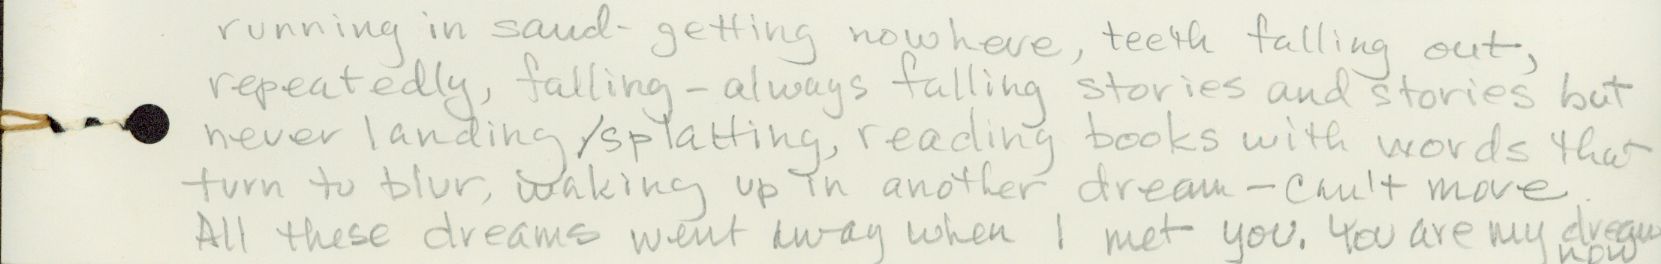 running in sand- getting nowhere, teeth falling out,
repeatedly, falling - always falling stories and stories but
never landing/splatting, reading books with words that
turn to blur, waking up in another dream - can't move.
All these dreams went away when I met you. You are my dream
now